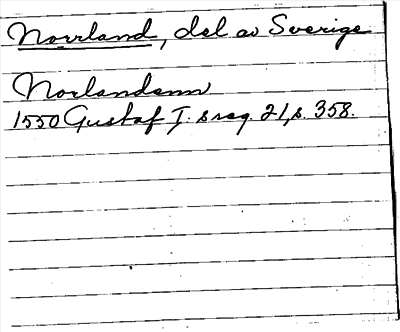 Norrland, del av Sverige
Norlandenn
1550 Gustaf I:s reg. 21, s. 358.